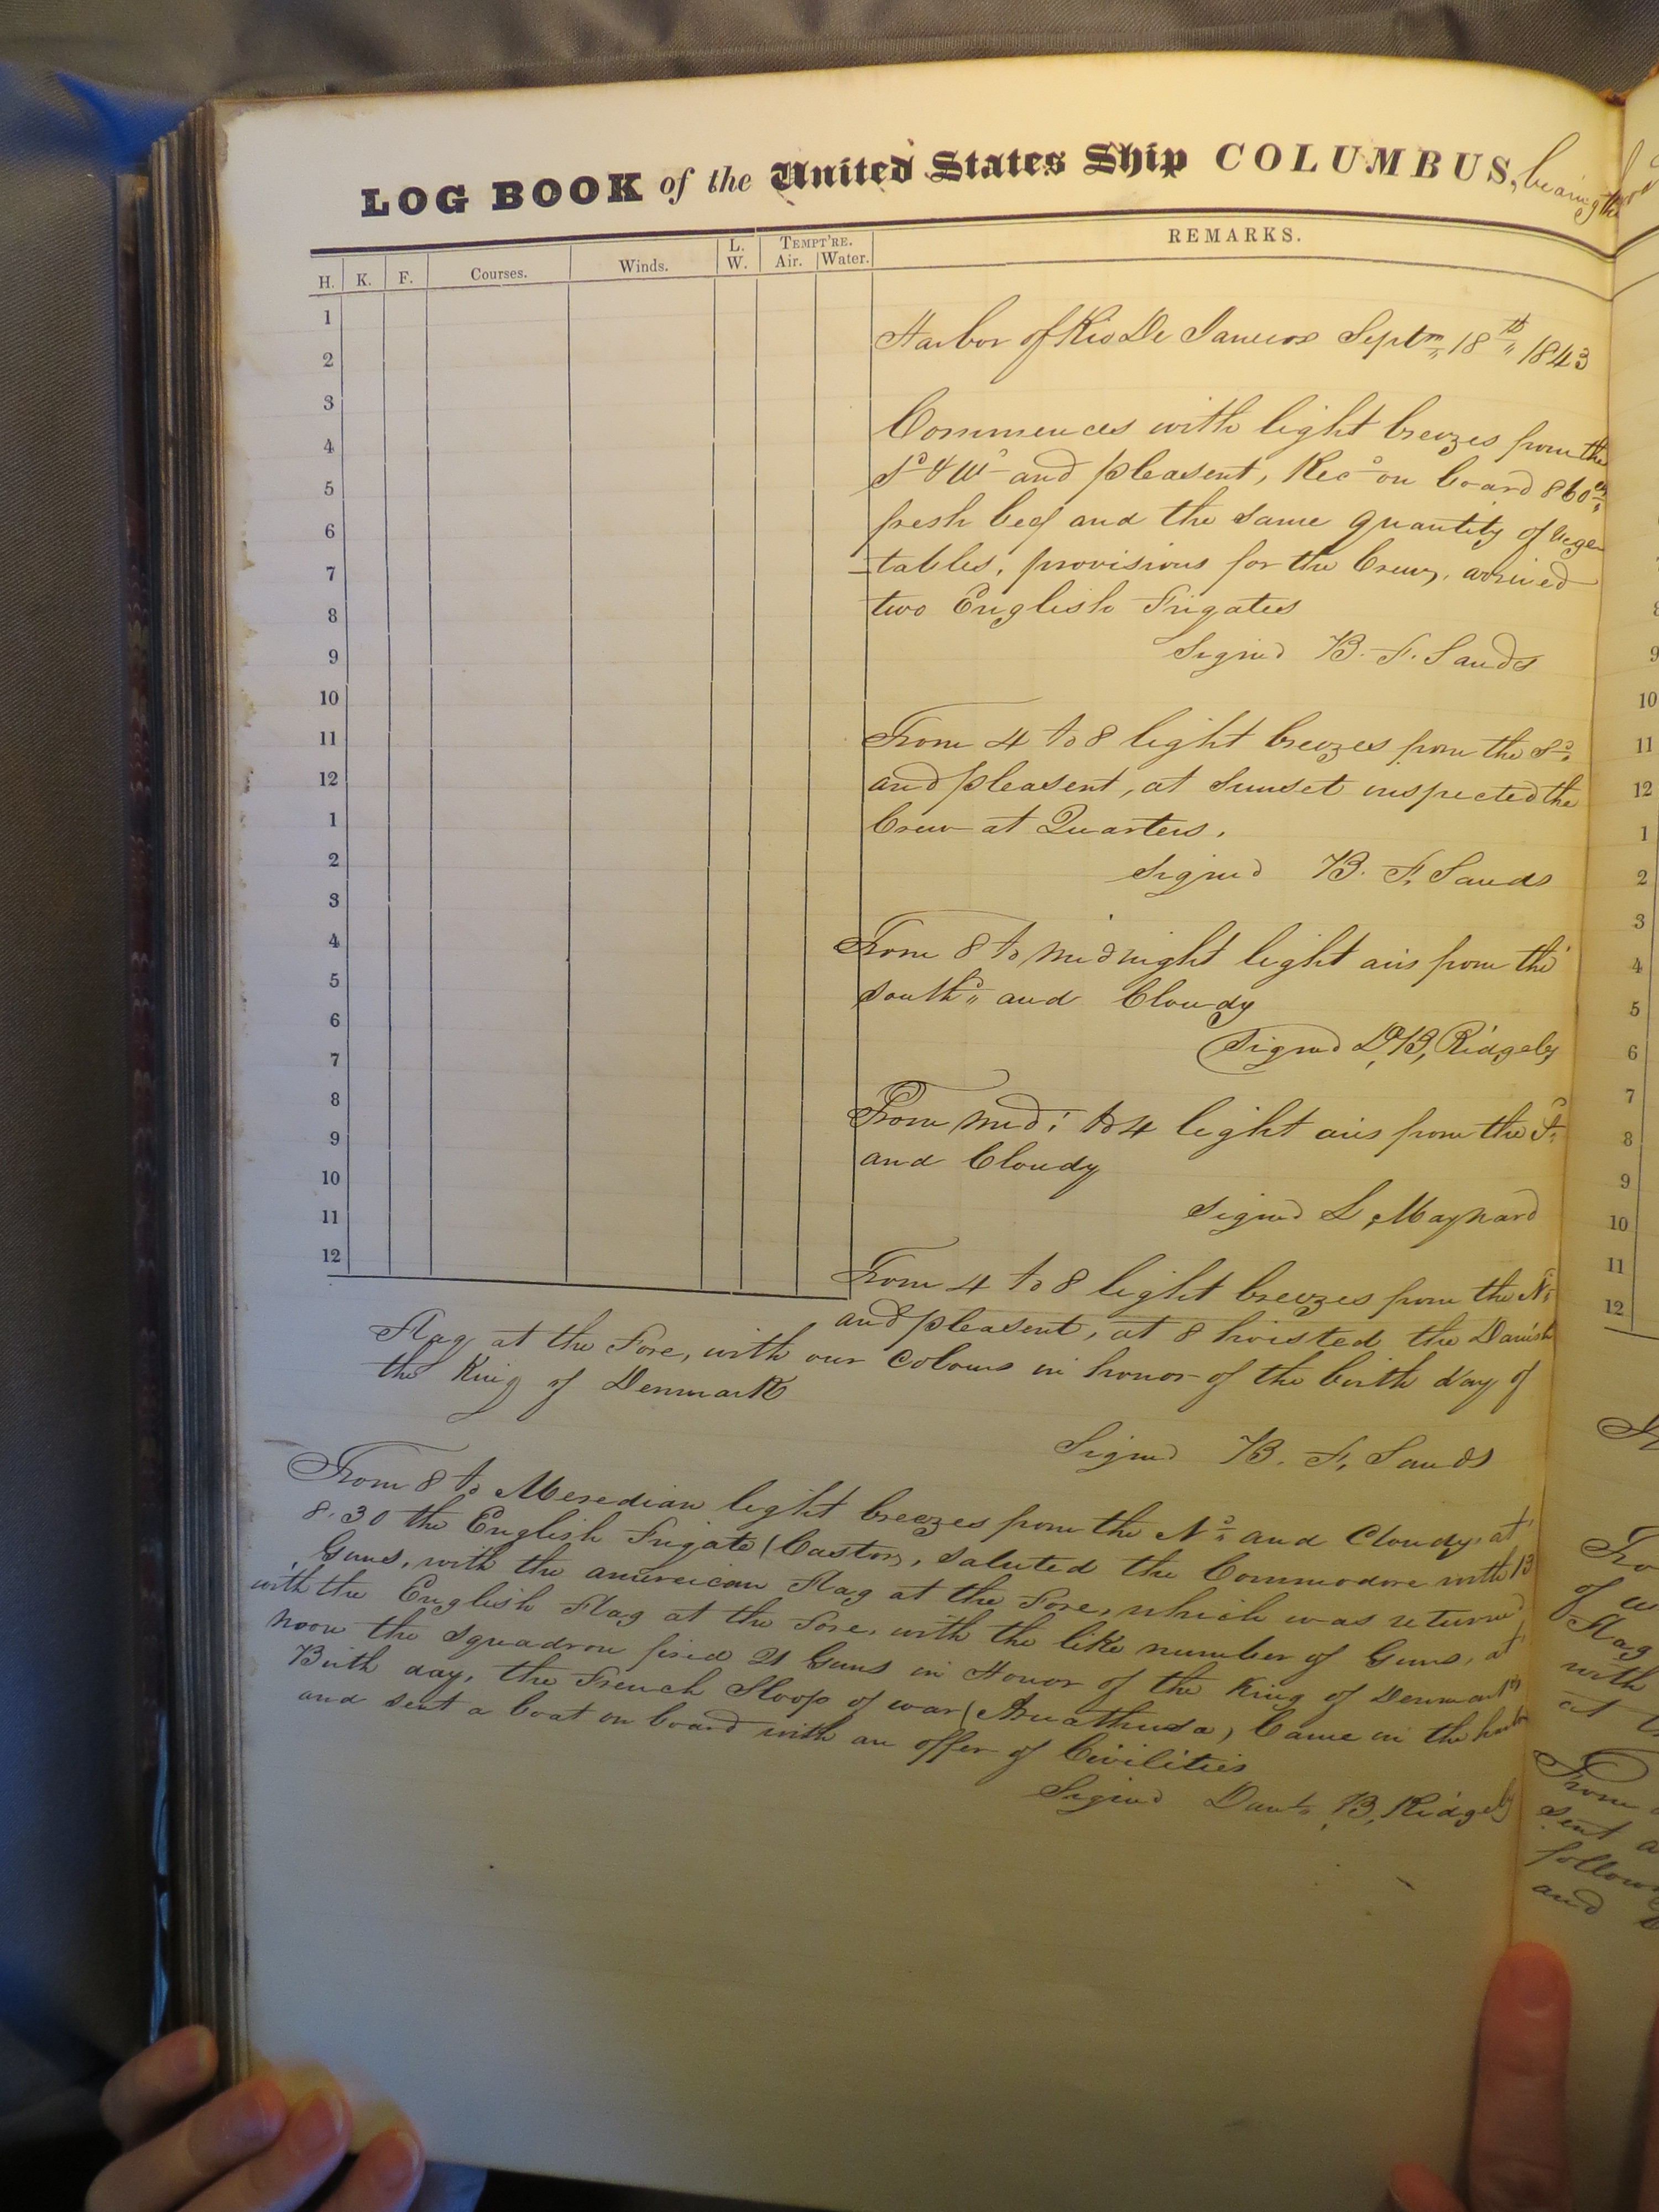 LOG BOOK of the United States Ship COLUMBUS, bearing the
H. K. F. Courses. Winds. L. W. TEMPT'RE. Air. Water. REMARKS.
1
2
3
4
5
6
7
8
9
10
11
12
1
2
3
4
5
6
7
8
9
10
11
12
Harbor of Rio De Janeiro Septm 18th 1843
Commences with light breezes from the
Sd & Wd and pleasent, Recd on board 860
fresh beef and the same quantity of vege
-tables, provisions for the Crew, arrived
two English Frigates
Signed B. F. Sands
From 4 to 8 light breezes from the Sd
and pleasent, at Sunset inspected the
Crew at Quarters.
Signed B. F. Sands
From 8 to midnight light airs from the
southd and Cloudy
Signed D. B. Ridgely
From mid: to 4 light airs from the Sd
and Cloudy
Signed L, Maynard
From 4 to 8 light breezes from the Nd
and pleasent, at 8 hoisted the Danish
Flag at the Fore, with our Colours in honor of the birth day of
the King of Denmark
Signed B. F. Sands
From 8 to Meredian light breezes from the Nd and Cloudy, at
8.30 the English Frigate (Castor, saluted the Commodore with 13
Guns, with the american Flag at the Fore, which was returned
with the English Flag at the Fore, with the like number of Guns, at
noon the squadron fired 21 Guns in Honor of the King of Denmark
Birth day, the French Sloop of war ( Came in the
and sent a boat on board with an offer of Civilities
Signed Danl. B. Ridgely
9
10
11
12
1
2
3
4
5
6
7
8
9
10
11
12
of
Flag
with
at
From
sent a
follow
and